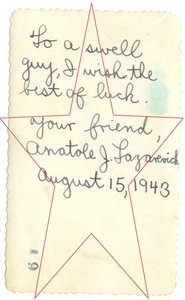 To a swell
guy, I wish the
best of luck.
Your friend,
Anatole J. Lazarevich
August 15, 1943